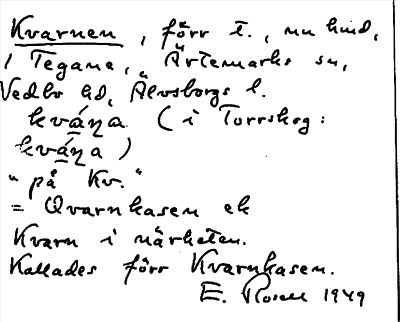 Kvarnen, förr t., nu hmd,
i Tegane, Ärtemarks sn,
Vedbo hd, Älvsborgs l.
kváṇa (i Torrskog:
kváṇa)
"på Kv."
= Qvarnkasen ek
Kvarn i närheten.
Kallades förr Kvarnkasen.
E. Rosell 1949